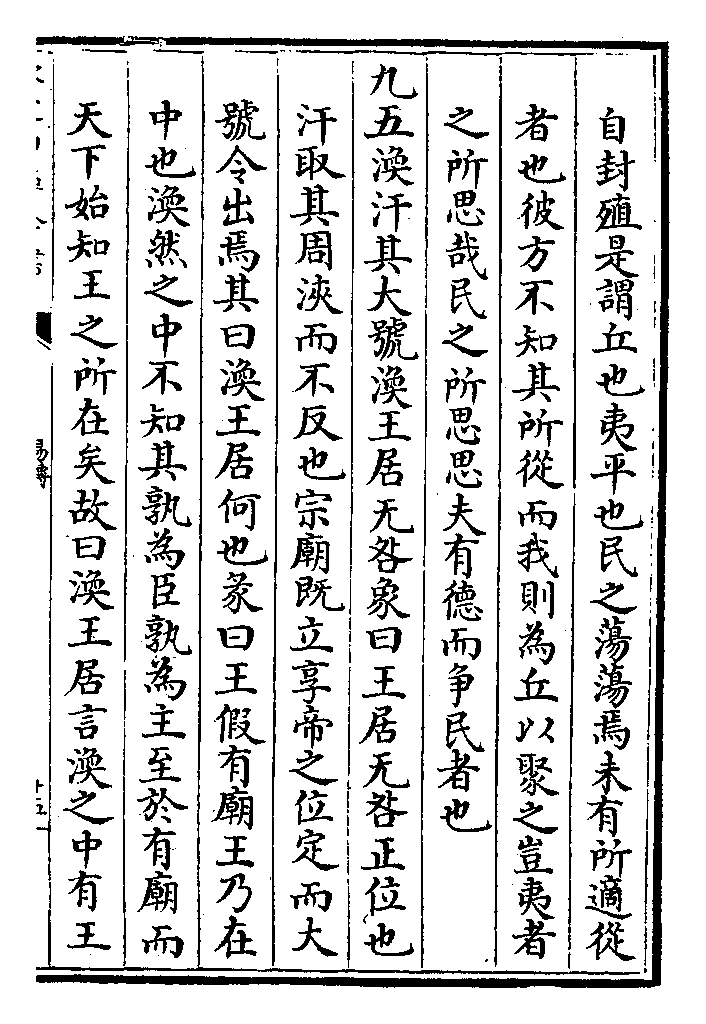 自封殖是謂丘也夷平也民之蕩蕩焉未有所適從
者也彼方不知其所從而我則為丘以聚之豈夷者
之所思哉民之所思思夫有德而争民者也
九五渙汗其大號渙王居无咎象曰王居无咎正位也
汗取其周浹而不反也宗廟既立享帝之位定而大
號令出焉其曰渙王居何也彖曰王假有廟王乃在
中也渙然之中不知其孰為臣孰為主至於有廟而
天下始知王之所在矣故曰渙王居言渙之中有王
易傳